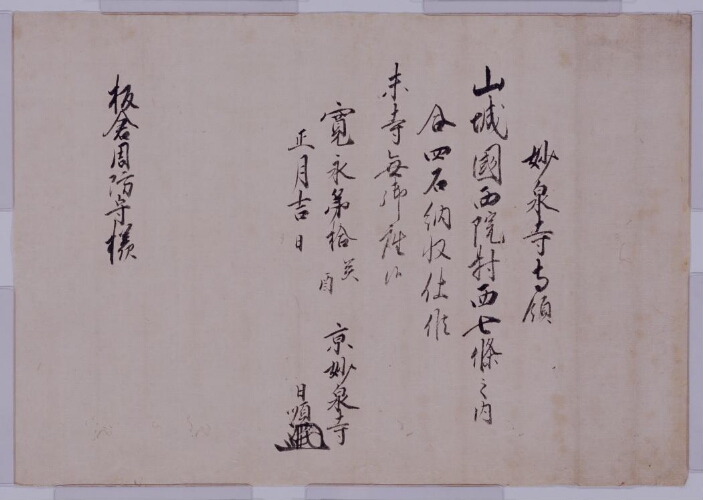 妙泉寺寺領
山城國西院村西七條之内
合四石納収仕候
末寺無御座候
寛永第拾癸酉
正月吉日
京妙泉寺
日順
板倉周防守様